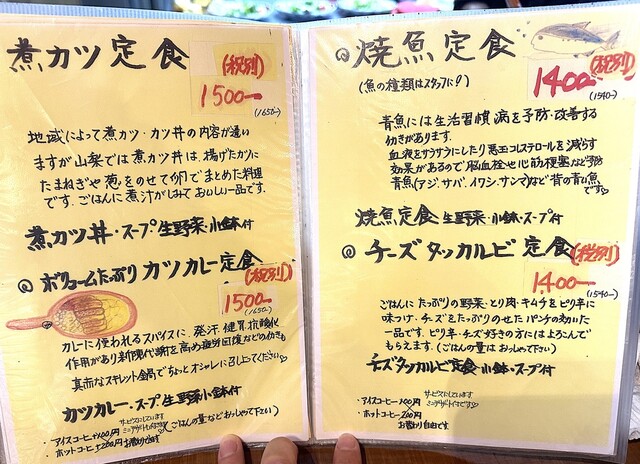 煮カツ定食
(税別)
1500-
(1650-)
地域によって煮カツ・カツ丼の内容が違い
ますが山梨では煮カツ丼は、揚げたカツに
たまねぎや葱をのせて卵でまとめた料理
です。ごはんに煮汁がしみておいしい一品です。
煮カツ丼・スープ生野菜・小鉢付
◎ボリュームたっぷりカツカレー定食
(税別)
1500-
(1650-)
カレーに使われるスパイスに発汗、健胃、抗酸化
作用があり新陳代謝を高め疲労回復などの効きも
真赤なスキレット鍋でちょっとオシャレに召し上ってください♡
カツカレー・スープ生野菜小鉢付
サービスにしています
・アイスコーヒー+100円
(ごはんの量などおっしゃって下さい)
・ホットコーヒー+200円
お替り自由です
◎焼魚定食
(税別)
(魚の種類はスタッフに!)
1400-
(1540-)
青魚には生活習慣病を予防・改善する
働きがあります。
血液をサラサラにしたり悪玉コレステロールを減らす
効果があるので脳血栓や心筋梗塞など予防
青魚(アジ、サバ、イワシ、サンマ)など背の青い魚
です♡
焼魚定食生野菜・小鉢・スープ付
◎チーズタッカルビ定食
(税別)
1400-
(1540-)
ごはんにたっぷりの野菜・とり肉・キムチをピリ辛に
味つけ、チーズをたっぷりのせたパンチの効いた
一品です。ピリ辛・チーズ好きの方にはよろこんで
もらえます。(ごはんの量はおっしゃて下さい)
チーズタッカルビ定食小鉢・スープ付
サービスにしています
・アイスコーヒー100円
ミニデザートイすです♡
・ホットコーヒー200円
お替り自由です。